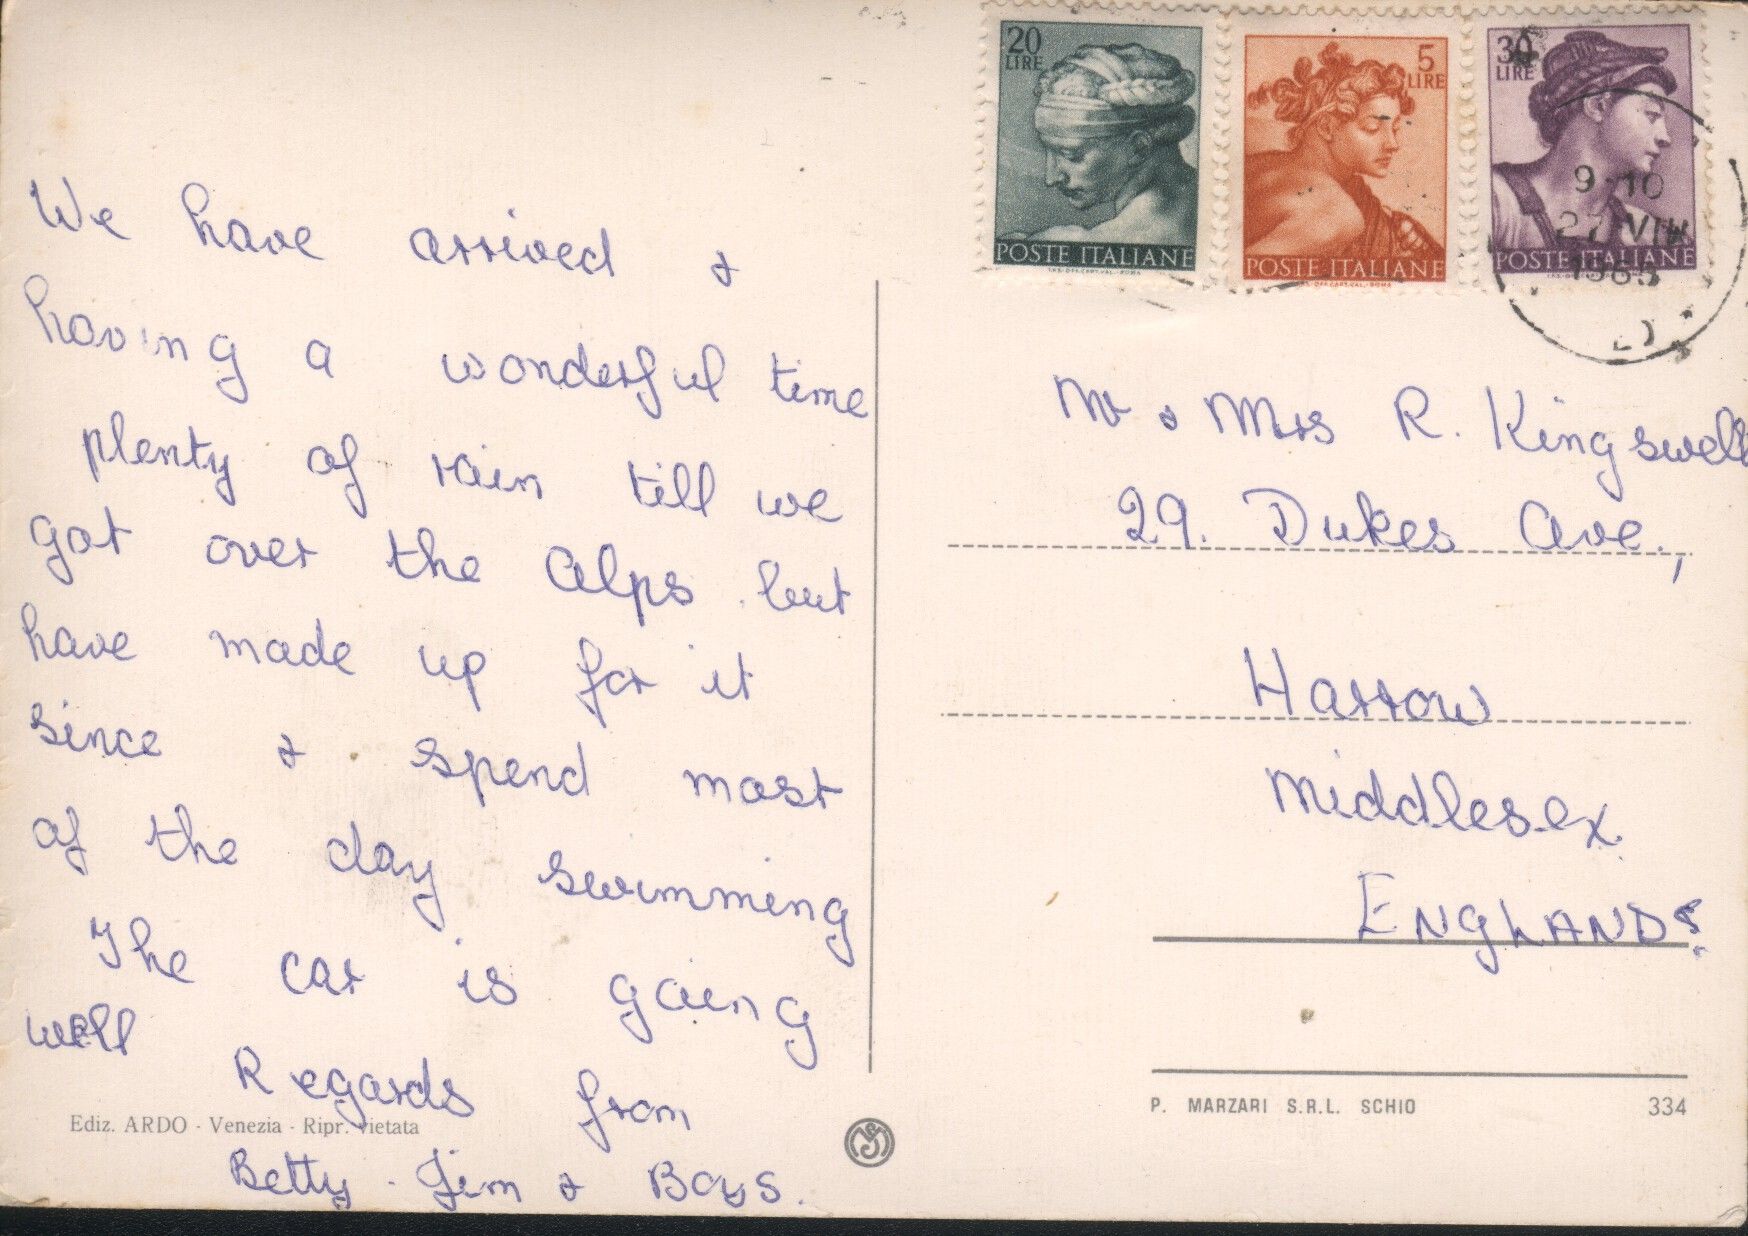 We have arrived &
having a wonderful time
plenty of rain till we
got over the Alps. but
have made up for it
since & spend most
of the day swimming
The car is going
well
Regards from
Betty. Jim & Boys.
Ediz. ARDO - Venezia - Ripr. vietata
20
LIRE
POSTE ITALIANE
5
LIRE
POSTE ITALIANE
30
LIRE
POSTE ITALIANE
9-10
27 VIII
1965
Mr & Mrs R. Kingswell
29. Dukes Ave.,
Harrow
Middlesex.
ENGLAND.
P. MARZARI S.R.L. SCHIO
334